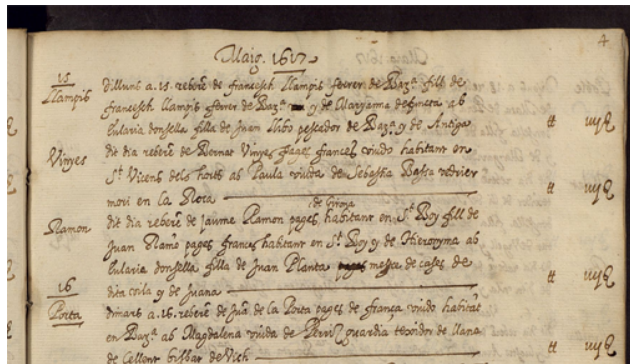 Maig. 1617
4
15
Llampis
dilluns a .15. rebere de francesch Llampis ferrer de Bar.ª fill de
francesch llampis ferrer de Bar.ª y de Maryanna defuncta ab
Eularia donsella filla de Juan llibo pescador de Bar.ª y de Antiga
Vinyes
dit dia rebere de Bernat Vinyes pages frances viudo habitant en
S.t Vicens dels horts ab Paula viuda de Sebastia Bassa
mori en la Roca
de Girona
Ramon
dit dia rebere de Jaume Ramon pages habitant en S.t Boy fill de
Juan Ramo pages frances habitant en S.t Boy y de Hieronyma ab
Eularia donsella filla de Juan Planta mestre de cases de
dita y de Juana
16
Porta
dimars a .16. rebere de Jua de la Porta pages de frança viudo habitat
en Bar.ª ab Magdalena viuda de guardia texidor de llana
de bisbat de Vich